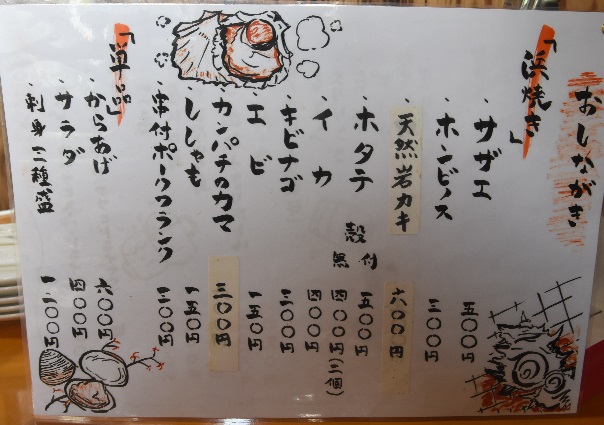 おしながき
「浜焼き」
・サザエ 五〇〇円
・ホンビノス 三〇〇円
天然岩カキ 六〇〇円
・ホタテ 殻付 一五〇円
無 四〇〇円(三個)
・イカ 四〇〇円
・キビナゴ 二〇〇円
・エビ 一五〇円
・カンパチのカマ 三〇〇円
・ししゃも 一五〇円
・串付ポークフランク 二〇〇円
「単品」
・からあげ 六〇〇円
・サラダ 四〇〇円
・刺身三種盛 一二〇〇円